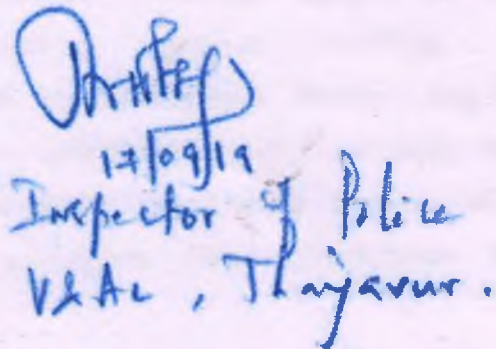 17/09/19
Inspector of Police
V&AC, Thanjavur.